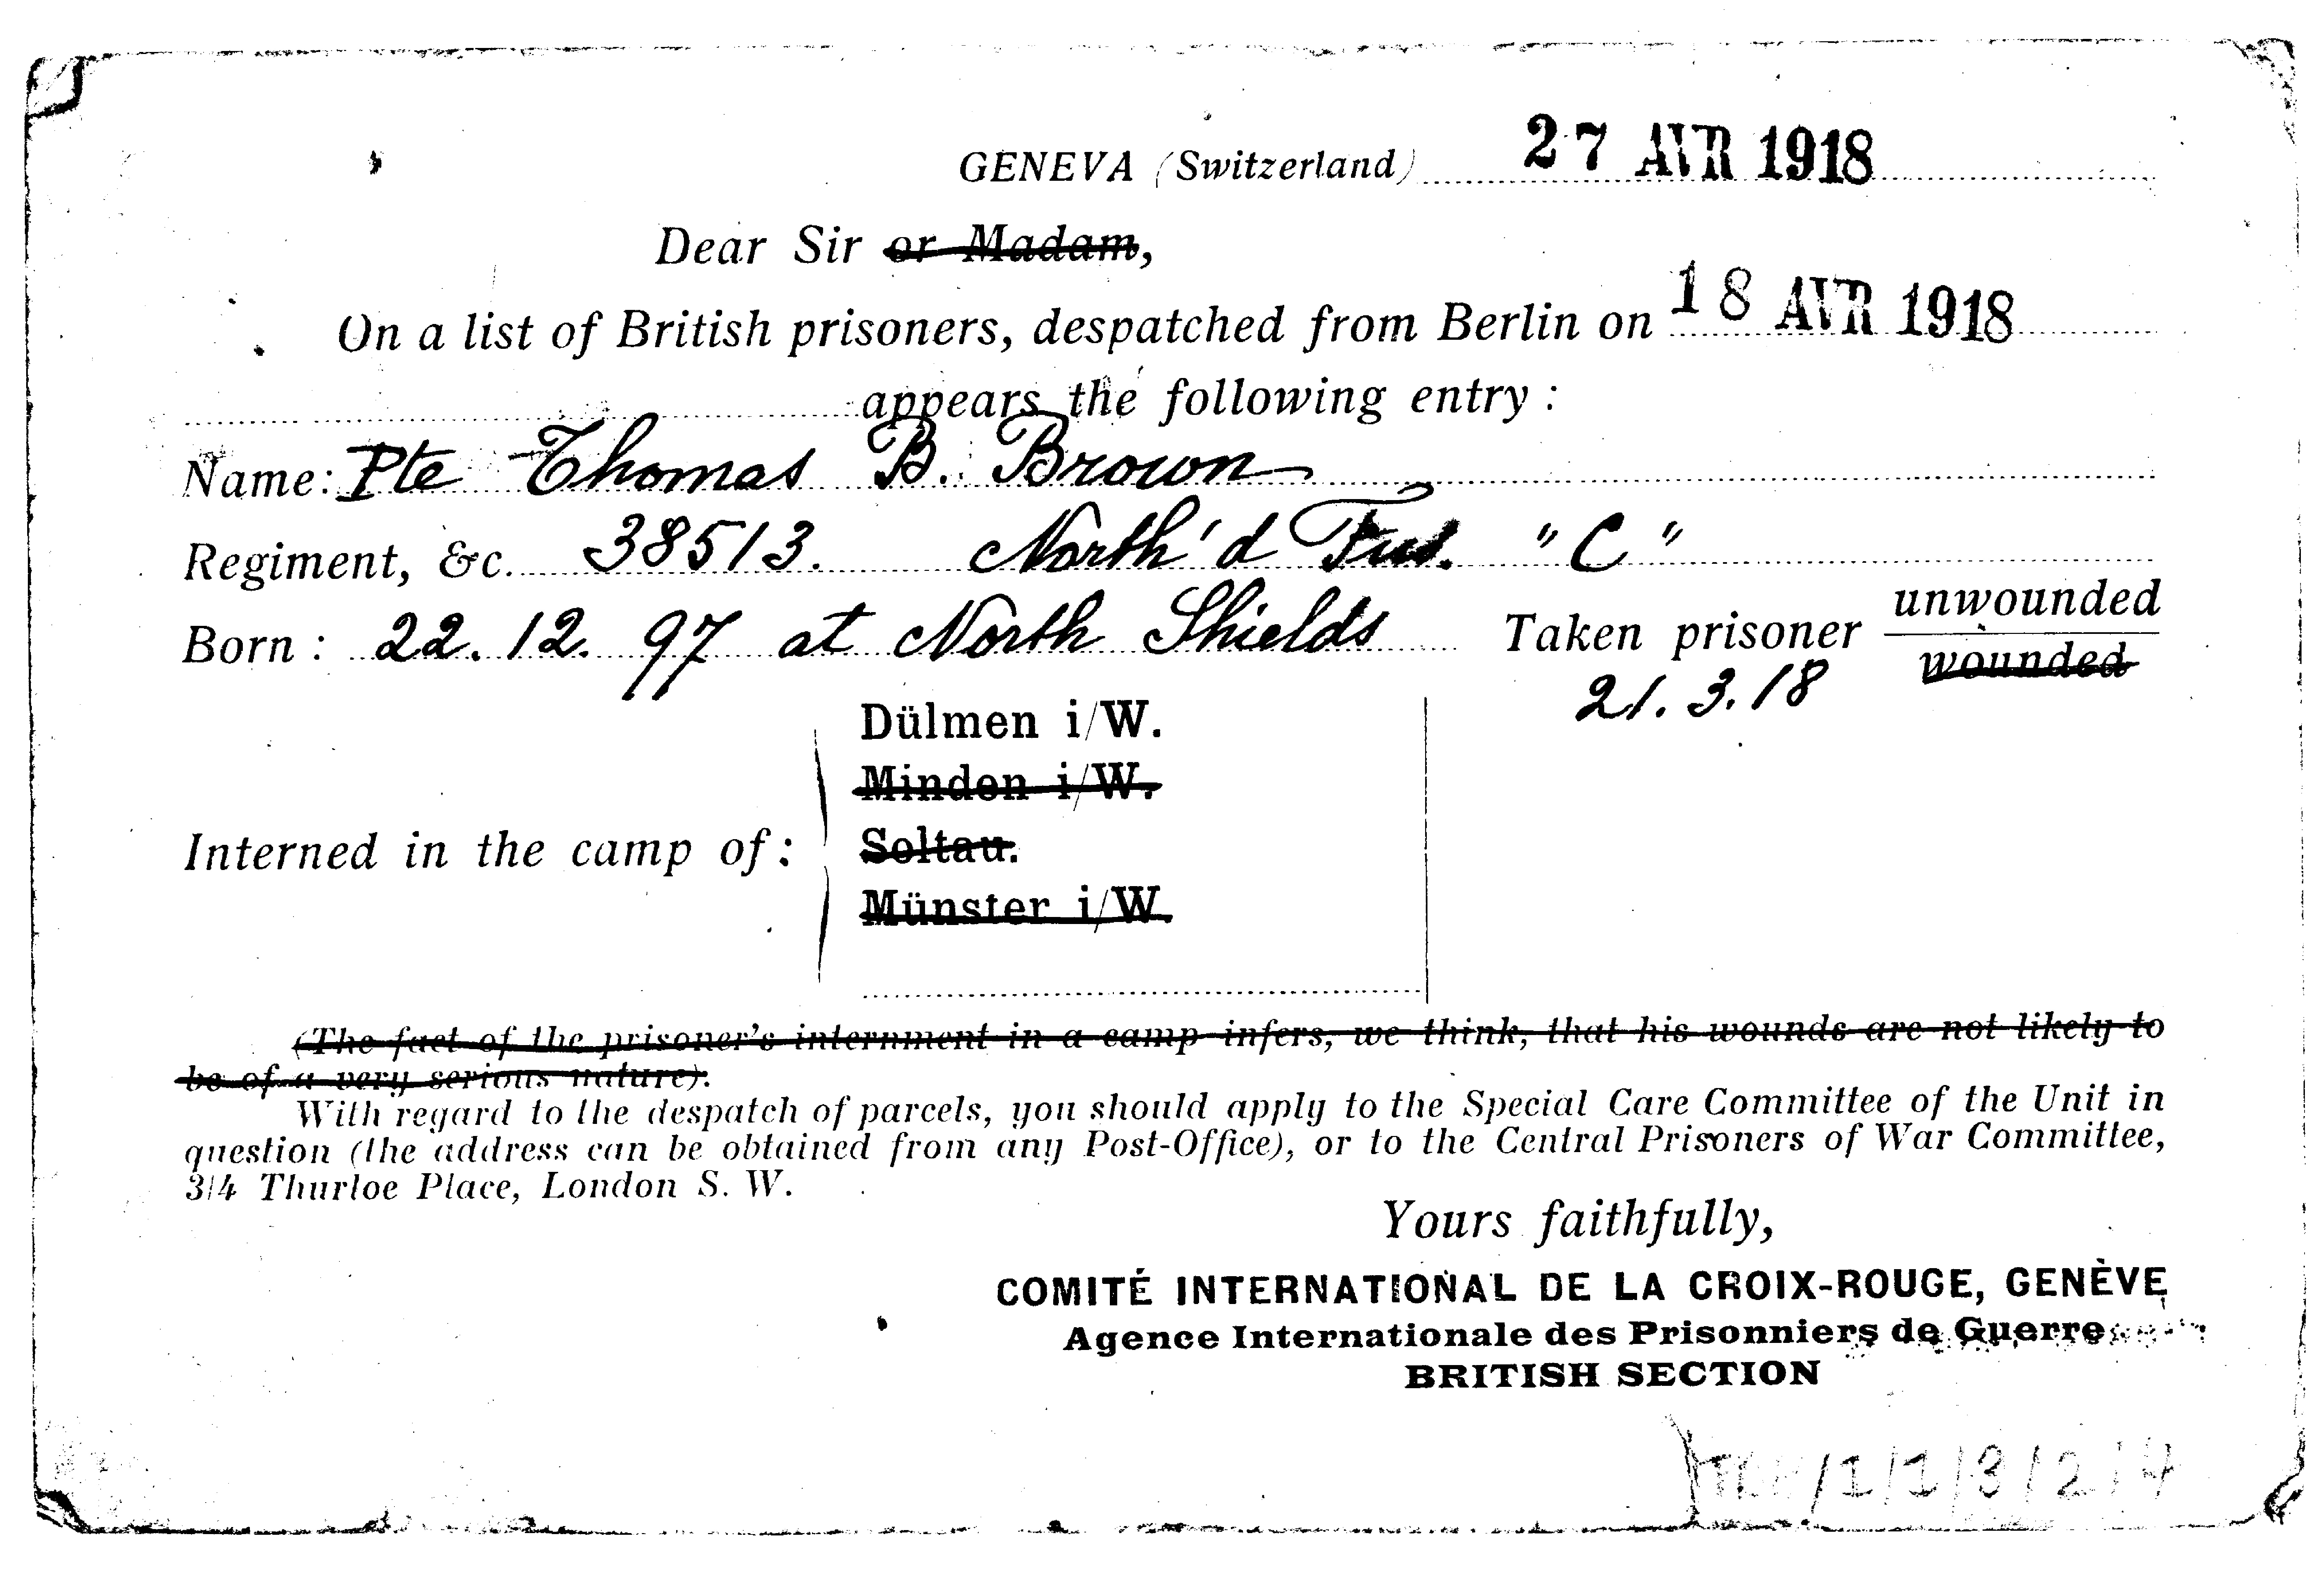 GENEVA (Switzerland) 27 AVR 1918
Dear Sir or Madam,
On a list of British prisoners, despatched from Berlin on 18 AVR 1918
appears the following entry :
Name: Pte Thomas B. Brown
Regiment, &c. 38513. North'd Fus. "C"
Born : 22.12.97 at North Shields Taken prisoner unwounded
wounded
21.3.18
Dülmen i/W.
Minden i/W.
Interned in the camp of : Soltau.
Münster i/W.
(The fact of the prisoner's internment in a camp infers, we think, that his wounds are not likely to
be of a very serious nature).
With regard to the despatch of parcels, you should apply to the Special Care Committee of the Unit in
question (the address can be obtained from any Post-Office), or to the Central Prisoners of War Committee,
3/4 Thurloe Place, London S. W.
Yours faithfully,
COMITÉ INTERNATIONAL DE LA CROIX-ROUGE, GENÈVE
Agence Internationale des Prisonniers de Guerre
BRITISH SECTION
/1/1/3/2/4